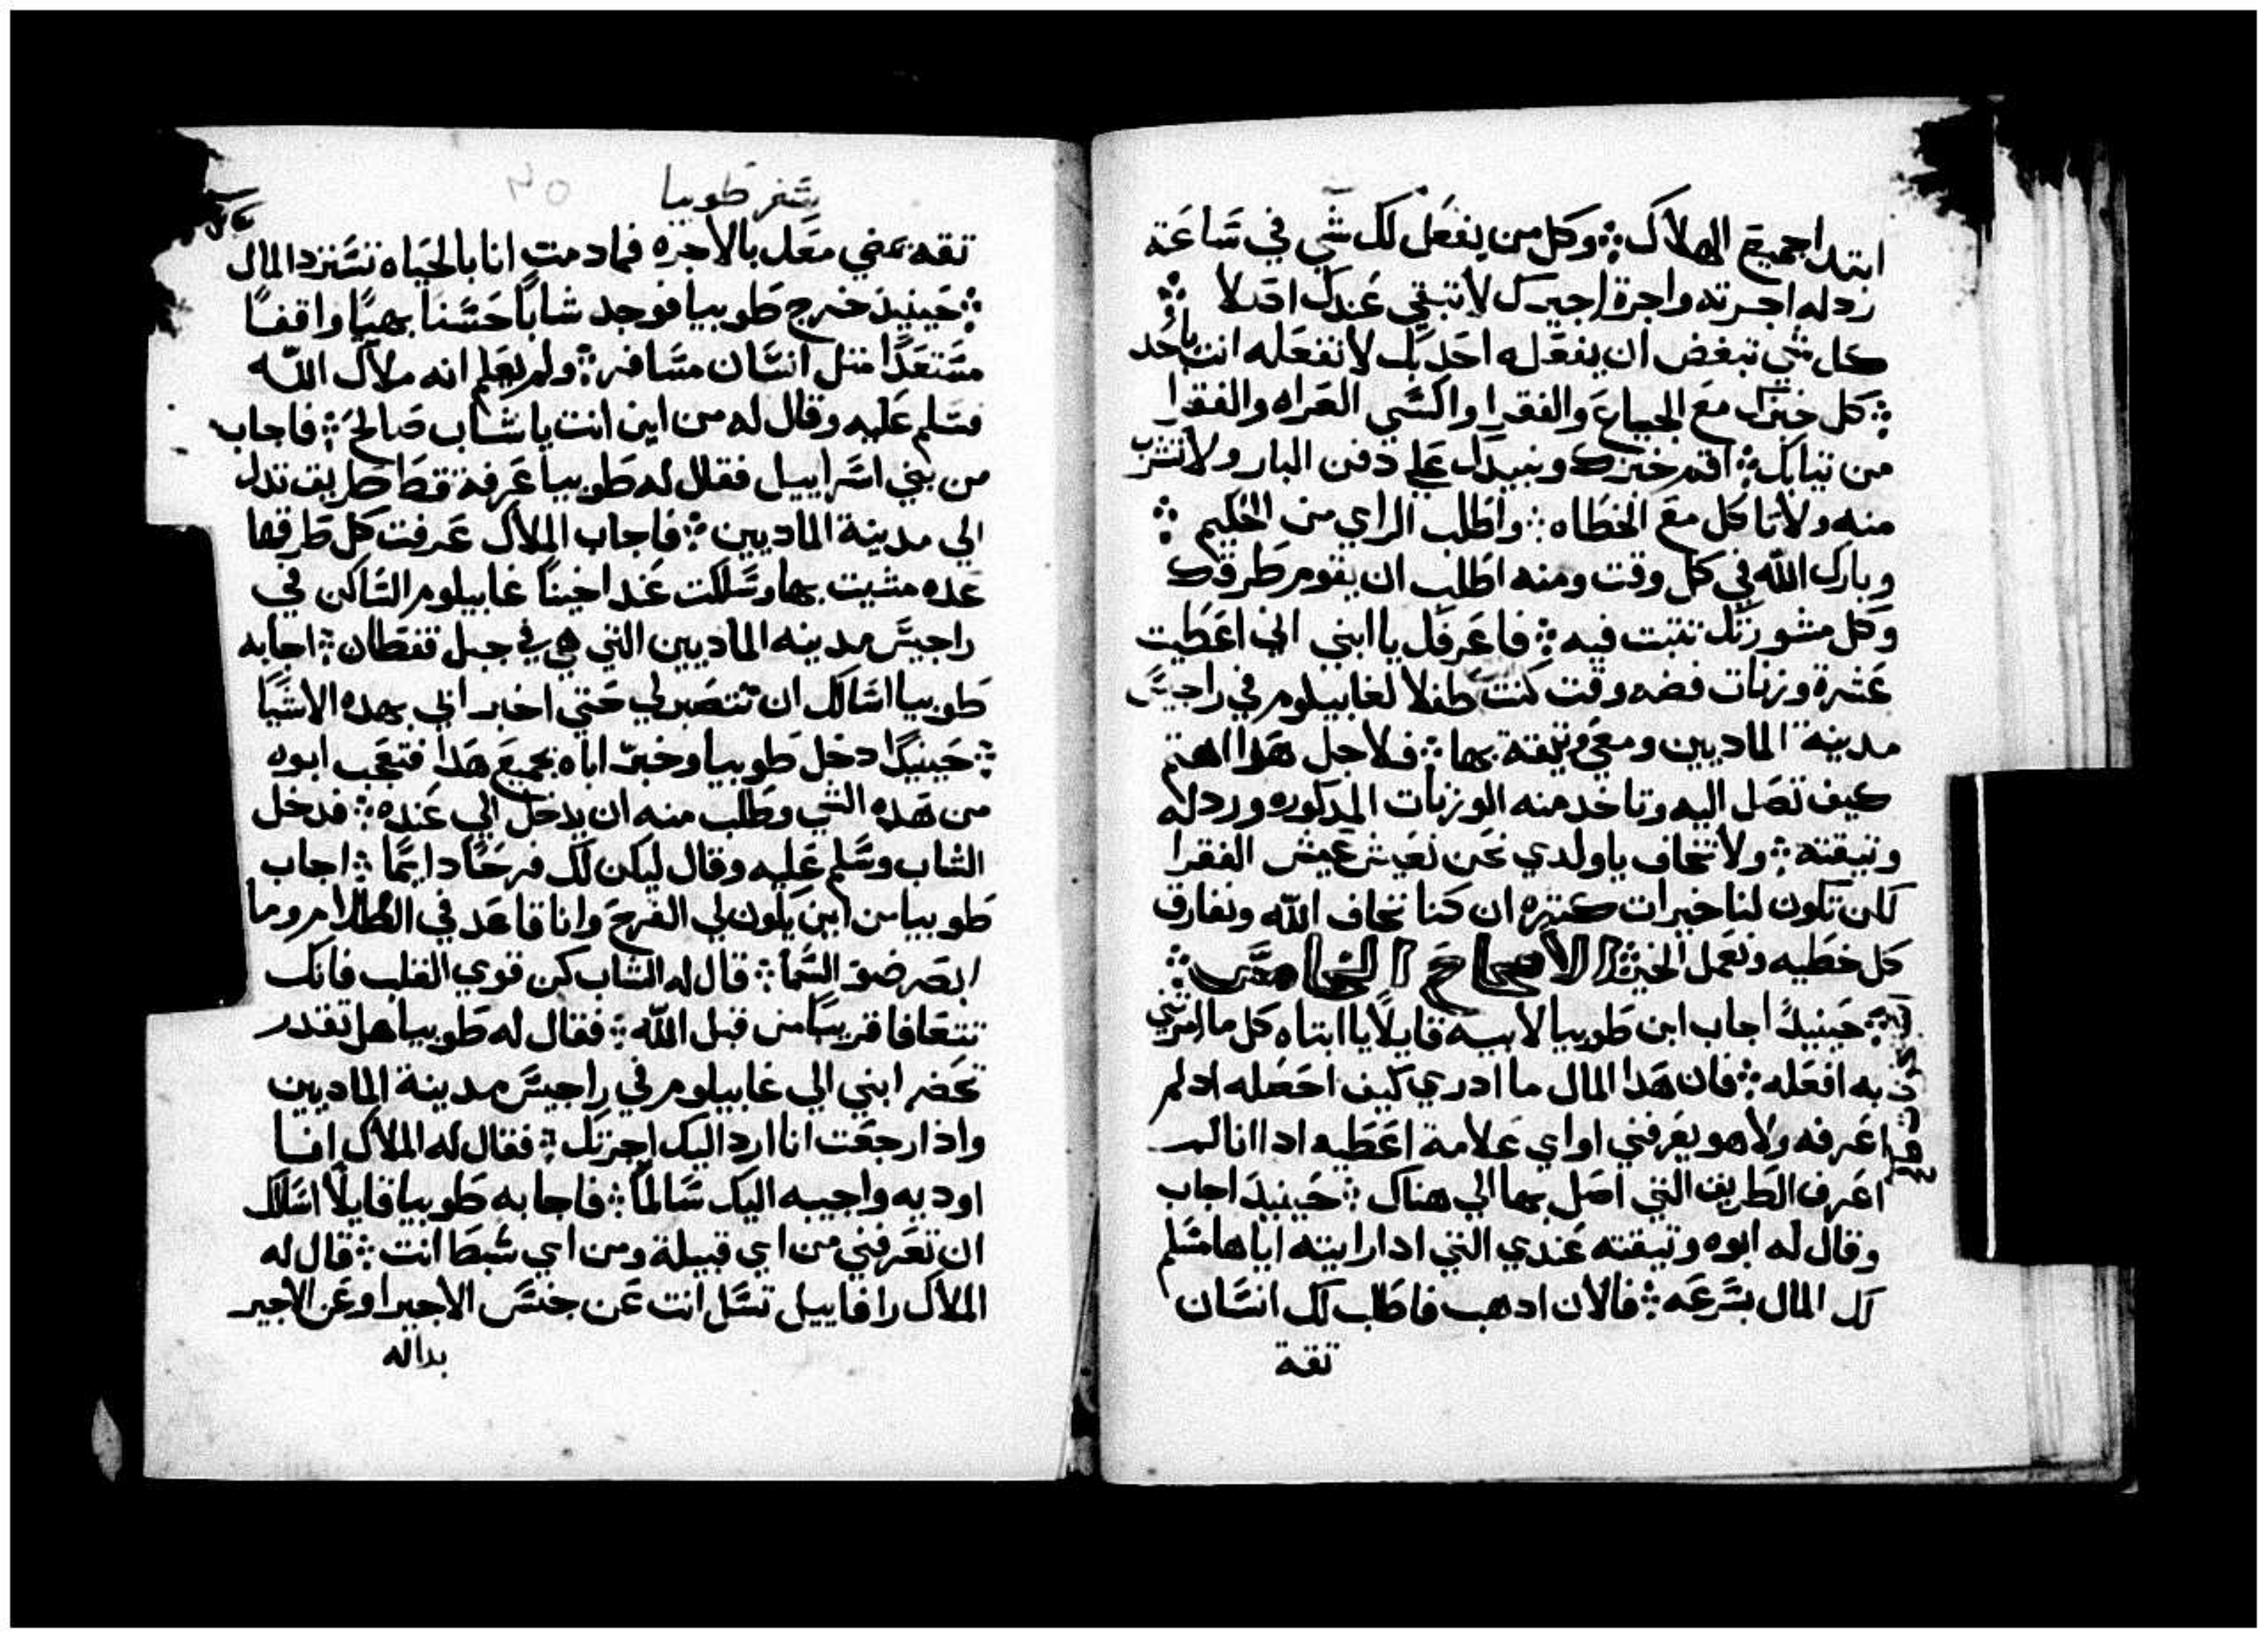 ابتدا جميع الهلاك ܀ وكل من يفعل لك شي في ساعته
رد له اجرته واجرة اجيرك لا تبقي عندك اصلا ܀
كل شي تبغض ان يفعله احد بك لا تفعله انت باحد
܀ كل خبزك مع الجياع والفقرا واكسي العراه والفقرا
من تيابك ܀ اقم خبزك ونبيدك علي دفن البار ولا تشرب
منه ولا تاكل مع الخطاه ܀ واطلب الراي من الحكيم ܀
وبارك الله في كل وقت ومنه اطلب ان يقوم طرقك
وكل مشورتك تتبت فيه ܀ فاعرفك يا ابني اني اعطيت
عشرة وزنات فضه وقت كنت طفلا لغابيلوم في راجيس
مدينة الماديين ومعي وتيقة بها ܀ فلاجل هدا اهتم
كيف تصل اليه وتاخد منه الوزنات المدكوره ورد له
وتيقته ܀ ولا تخاف ياولدي نحن نعيش عيش الفقرا
لكن تكون لنا خيرات كتيره ان كنا نخاف الله ونفارق
كل خطيه ونعمل الخير الاصحاح الخامس ܀
܀ حينيدً اجاب ابن طوبيا لابيه قايلاً يا ابتاه كل ما امرتني
به افعله ܀ فان هدا المال ما ادري كيف احصله اد لم
اعرفه ولا هو يعرفني او اي علامة اعطيه ادا انا لم
اعرف الطريق التي اصل بها الي هناك ܀ حينيد اجاب
وقال له ابوه وتيقته عندي التي ادا رايته اياها سلم
لك المال بسرعه ܀ فالان ادهب فاطلب لك انسان
تقة
سفر طوبيا
٢٥
تقه يمضي معك بالاجره فمادمت انا بالحياه تسترد المال
܀ حينيد خرج طوبيا فوجد شاباً حسناً بهيّاً واقفاً
مستعداً متل انسان مسافر ܀ ولم يعلم انه ملاك الله
فسلم عليه وقال له من اين انت يا شاب صالح ܀ فاجاب
من بني اسراييل فقال له طوبيا عرفة قط طريق تدل
الي مدينة الماديين ܀ فاجاب الملاك عرفت كل طرقها
عده مشيت بها وسلكت عند اخينا غابيلوم الساكن في
راجيس مدينه الماديين التي هي في جبل قفطان ܀ اجابه
طوبيا اسالك ان تنتصبر لي حتي اخبر ابي بهده الاشيا
܀ حينيدًا دخل طوبيا وخبر اباه بجميع هدا فتعجب ابوه
من هده الشي وطلب منه ان يدخل الي عنده ܀ فدخل
الشاب وسلم عليه وقال ليكن لك فرحاً دايماً ܀ اجاب
طوبيا من اين يكون لي الفرح وانا قاعد في الظلام وما
ابصر ضو السما ܀ قال له الشاب كن قوي القلب فانك
تتعافا قريباً من قبل الله ܀ فقال له طوبيا هل تقدر
تحضر ابني الي غابيلوم في راجيس مدينة الماديين
واذا رجعت انا ارد اليك اجرتك ܀ فقال له الملاك انا
اوديه واجيبه اليك سالماً ܀ فاجابه طوبيا قايلاً اسلك
ان تعرفني من اي قبيلة ومن اي شبط انت ܀ قال له
الملاك رافاييل تسل انت عن جنس الاجير او عن الاجير
بداله